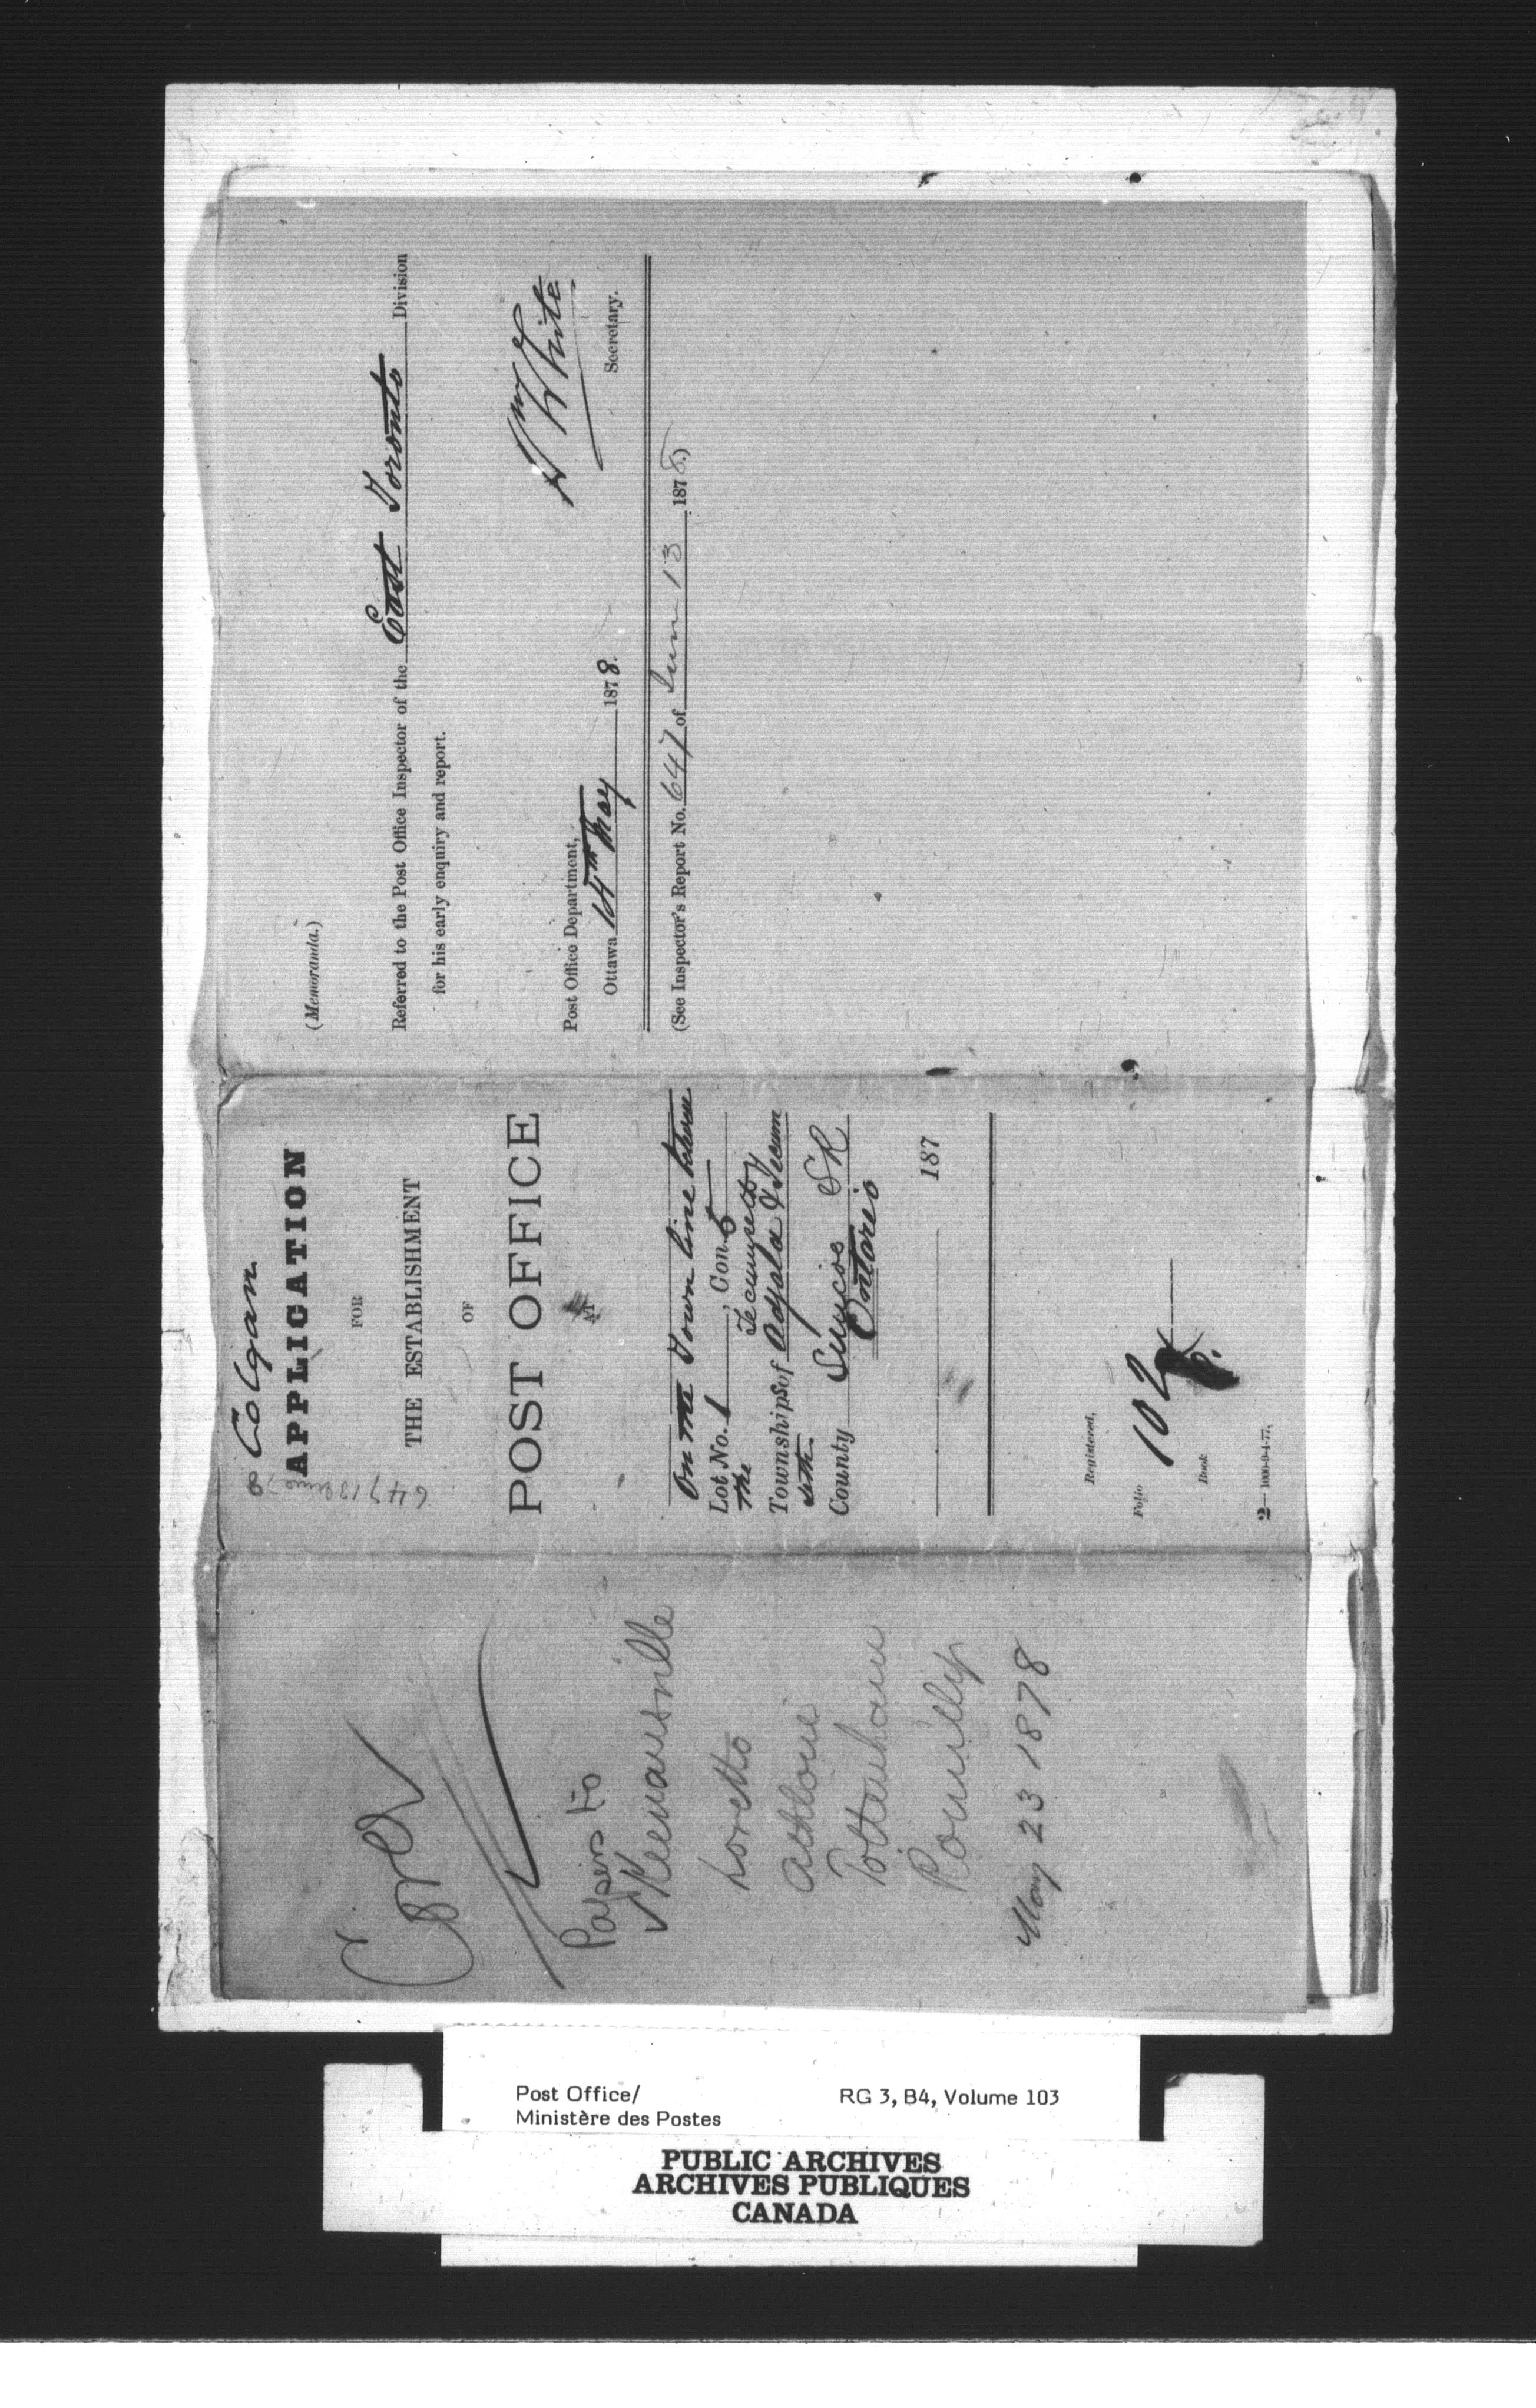 Papers to
Keenansville
Loretto
Athlone
Tottenham
Romilly
May 23 1878
Colgan
647 13 June 78
APPLICATION
FOR
THE ESTABLISHMENT
OF
POST OFFICE
AT
On the Town line between
Lot No. 1, Con 5
the Tecumseth
Townships of Adjala & Tecum
seth.
County Simcoe SR
Ontario
187
Registered,
Folio 102
Book
2—1000-9-4-77.
(Memoranda.)
Referred to the Post Office Inspector of the East Toronto Division
for his early enquiry and report.
Wm White
Secretary.
Post Office Department,
Ottawa 14th May 1878.
(See Inspector's Report No. 647 of June 13 1878)
Post Office/
Ministère des Postes
RG 3, B4, Volume 103
PUBLIC ARCHIVES
ARCHIVES PUBLIQUES
CANADA